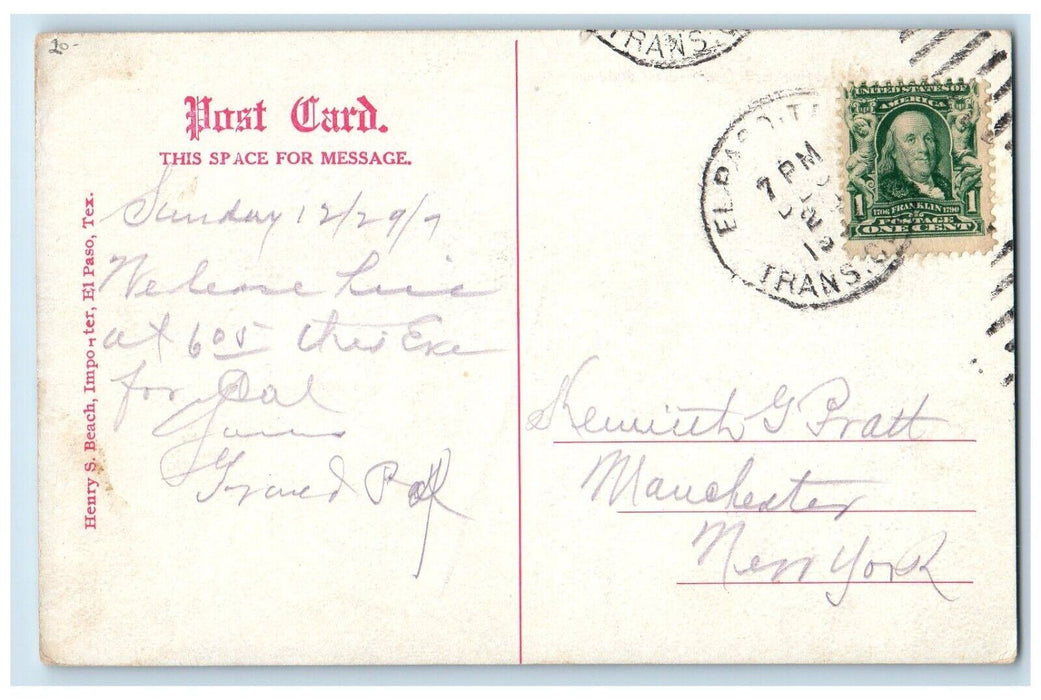 20-
Post Card.
THIS SPACE FOR MESSAGE.
Sunday 12/29/7
at 605 this Eve
for Cal
Yours
Grand Pa
Henry S. Beach, Importer, El Paso, Tex.
TRANS.
EL PASO, T
7 PM
TRANS.C
UNITED STATES OF
AMERICA
1 1706 FRANKLIN 1790 1
POSTAGE
ONE CENT
Kenneth G Pratt
Manchester
New York